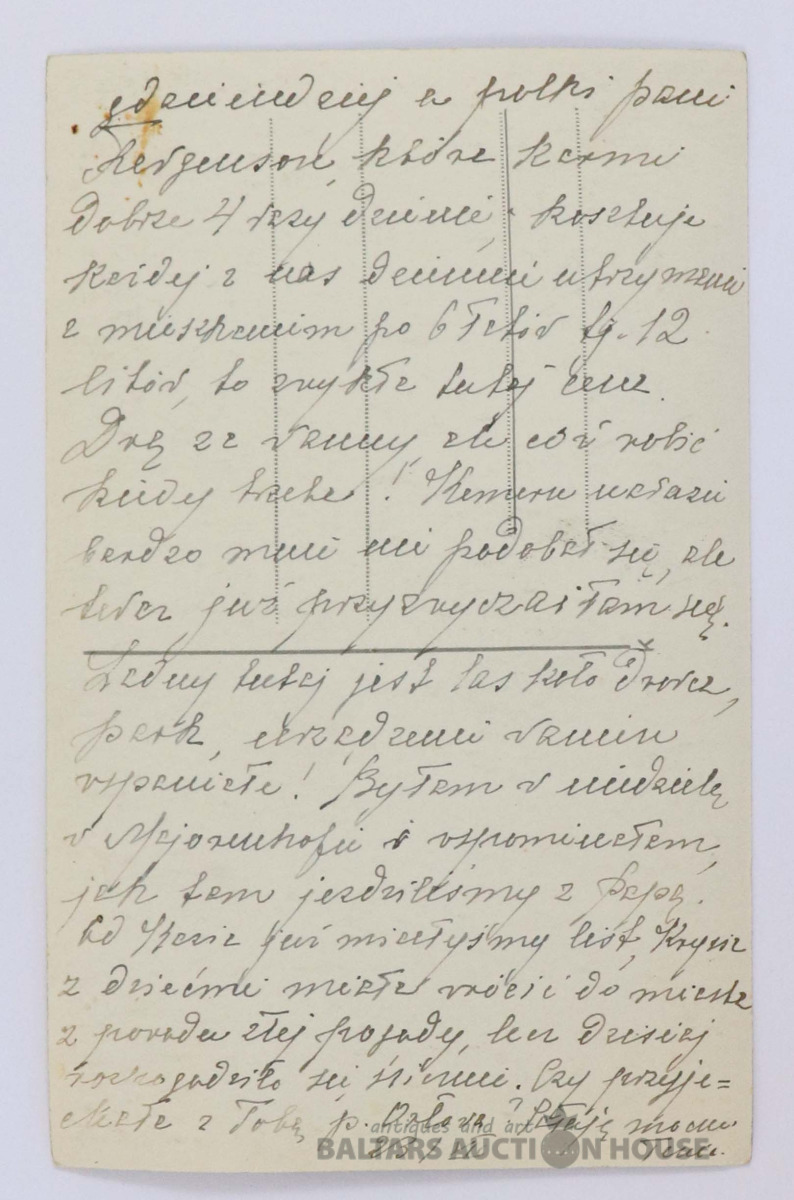 gdzieindziej a polki pani
która karmi
dobrze 4 razy dziennie, kosztuje
każdej z nas dziennie utrzymanie
z mieszkaniem po 6 łatów tj. 12
litów, to zwykła tutaj cena.
Drą za wanny, ale cóż robić
kiedy trzeba! Kemern na razie
bardzo mnie nie podobał się, ale
teraz już przyzwyczaiłam się.
Ładny tutaj jest las koło dworca,
park, urządzenie wanien
wspaniałe! Byłam w niedzielę
w Majorenhofie i wspominałam,
jak tam jeździliśmy z Papą.
Od Kazia już miałyśmy list, Krysia
z dziećmi miała wrócić do miasta
z powodu złej pogody, lecz dzisiaj
rozpogodziło się ślicznie. Czy przyje=
chała z Tobą p. ? mocno
antiques and art
BALTARS AUCTION HOUSE